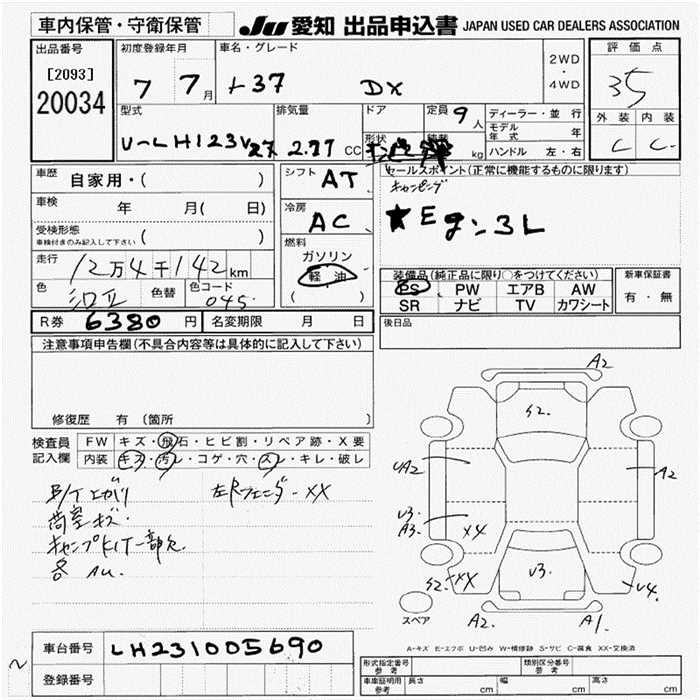 車内保管・守衛保管
JU 愛知 出品申込書 JAPAN USED CAR DEALERS ASSOCIATION
出品番号
[2093]
20034
初度登録年月
7 7月
車名・グレード
ト37 DX
2WD
・
4WD
評価点
35
外装 内装
C C
型式
U-LH123V
排気量
2.77 CC
ドア
形状
定員 9人
積載 kg
ディーラー・並行
モデル年式 年
ハンドル 左・右
車歴
自家用・( )
車検
年 月( 日)
受検形態
車検付きのみ記入して下さい ( )
走行
12万4千142km
色
色替
色コード
045
R券 6380円
名変期限 月 日
シフト AT
冷房 AC
燃料
ガソリン
軽油
( )
セールスポイント(正常に機能するものに限ります)
キャンピング
★Eg:3L
装備品(純正品に限り○をつけてください)
PS PW エアB AW
SR ナビ TV カワシート
新車保証書
有・無
後日品
注意事項申告欄(不具合内容等は具体的に記入して下さい)
修復歴 有(箇所 )
検査員記入欄
FW キズ・飛石・ヒビ割・リペア跡・X要
内装 キズ・汚レ・コゲ・穴・スレ・キレ・破レ
荷室キズ・
キャンプKIT一部欠
各 AU.
左Rフェンダ-XX
A2
S2.
UA2
A2
U3.
A3.
X4
S2
XX
U3.
U4.
スペア
A2.
A1.
A-キズ E-エクボ U-凹み W-補修跡 S-サビ C-腐食 XX-交換済
車台番号 LH231005690
登録番号
形式指定番号
参考
類別区分番号
参考
車庫証明用
参考
長さ cm
幅 cm
高さ cm